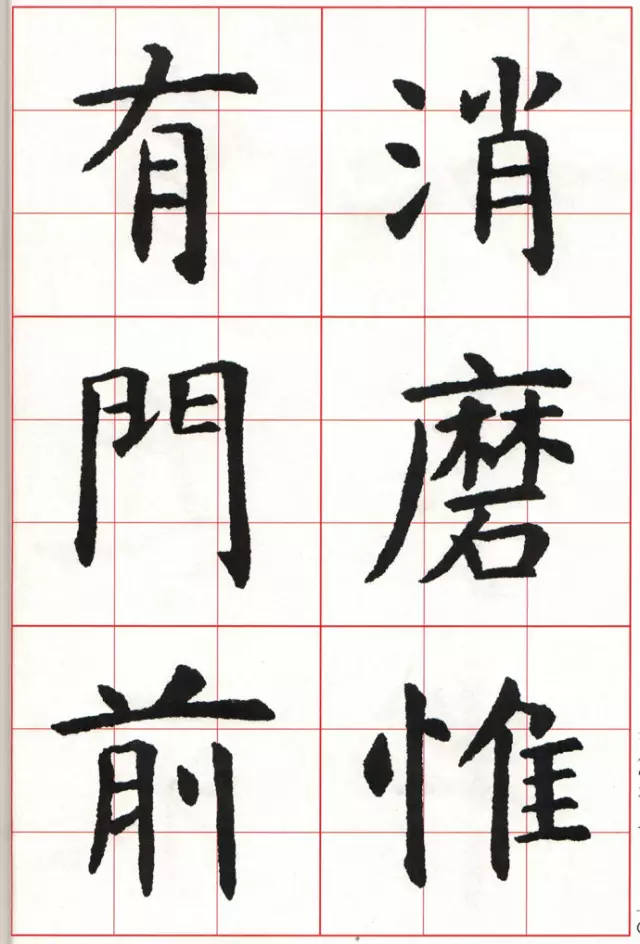 消磨惟
有門前